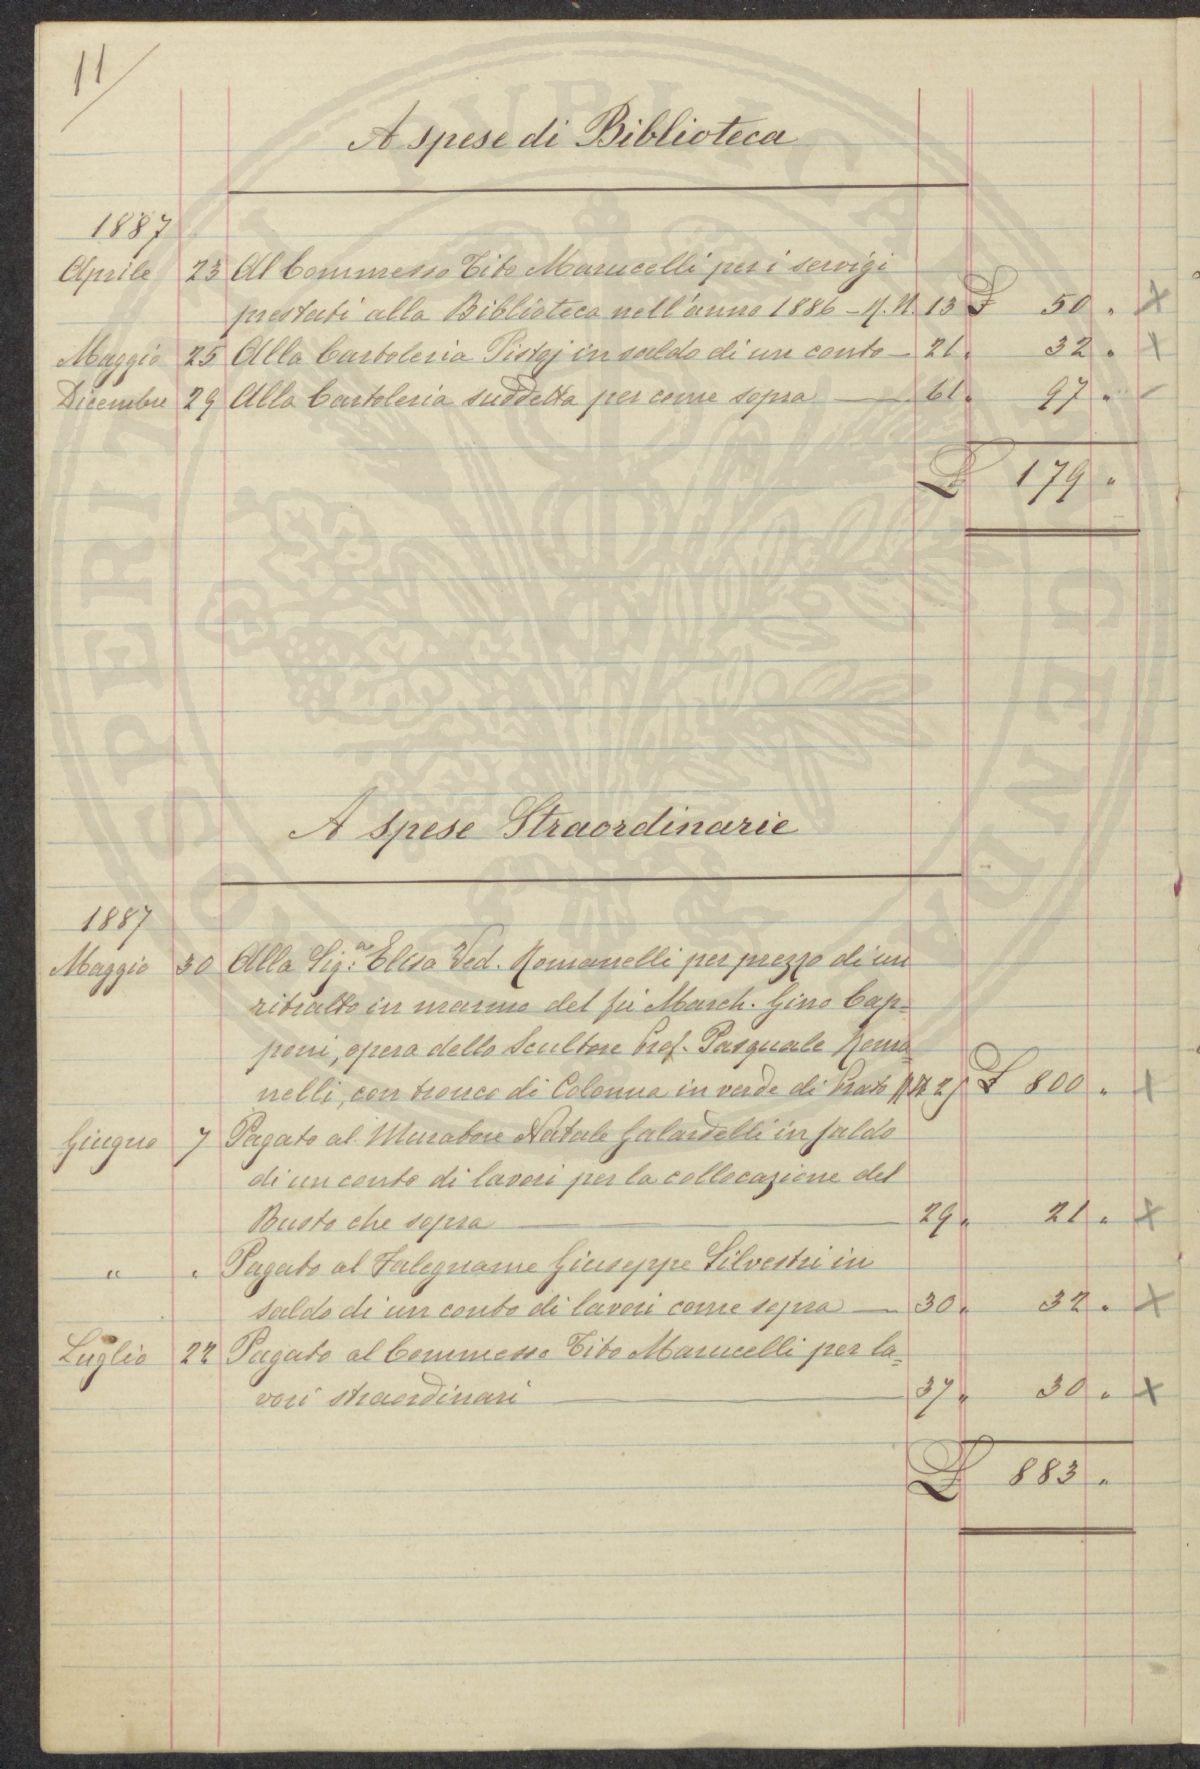 11
A spese di Biblioteca
1887
Aprile 23 Al Commesso Tito Marucelli per i servigi
prestati alla Biblioteca nell'anno 1886 - M. U. 13 £ 50 "
Maggio 25 Alla Cartoleria Pistoj in saldo di un conto — 21 " 32 "
Dicembre 29 Alla Cartoleria suddetta per come sopra — 61 " 97 "
£ 179 "
A spese Straordinarie
1887
Maggio 30 Alla Sig.ra Elisa Ved. Romanelli per prezzo di un
ritratto in marmo del fù March. Gino Cap=
poni, opera dello Scultore Prof. Pasquale Roma
nelli, con tronco di Colonna in verde di Prato 27 £ 800 "
Giugno 7 Pagato al Muratore Natale Galardelli in saldo
di un conto di lavori per la collocazione del
Busto che sopra — 29 " 21 "
" " Pagato al Falegname Giuseppe Silvestri in
saldo di un conto di lavori come sopra — 30 " 32 "
Luglio 22 Pagato al Commesso Tito Marucelli per la=
vori straordinari — 37 " 30 "
£ 883 "